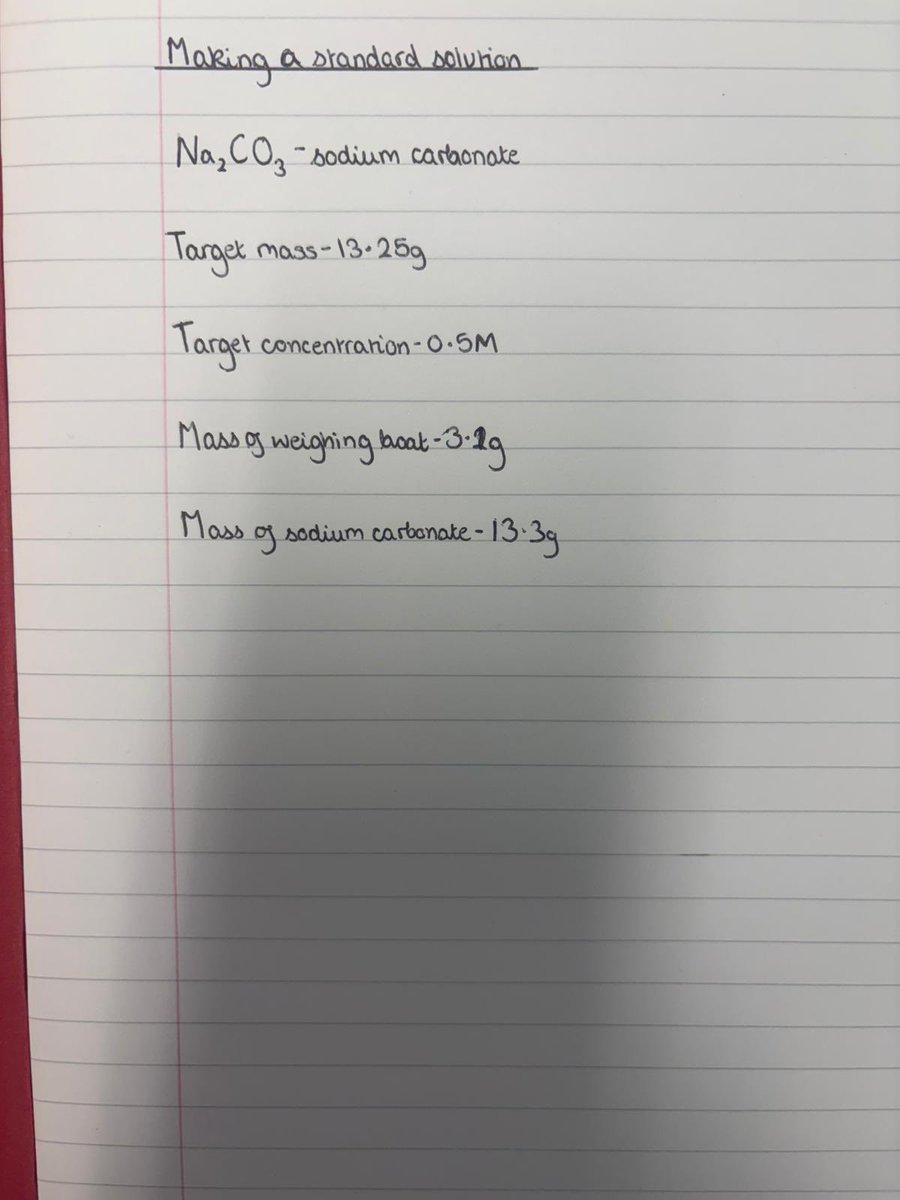 Making a standard solution
Na₂CO₃ - sodium carbonate
Target mass - 13.25g
Target concentration - 0.5M
Mass of weighing boat - 3.1g
Mass of sodium carbonate - 13.3g